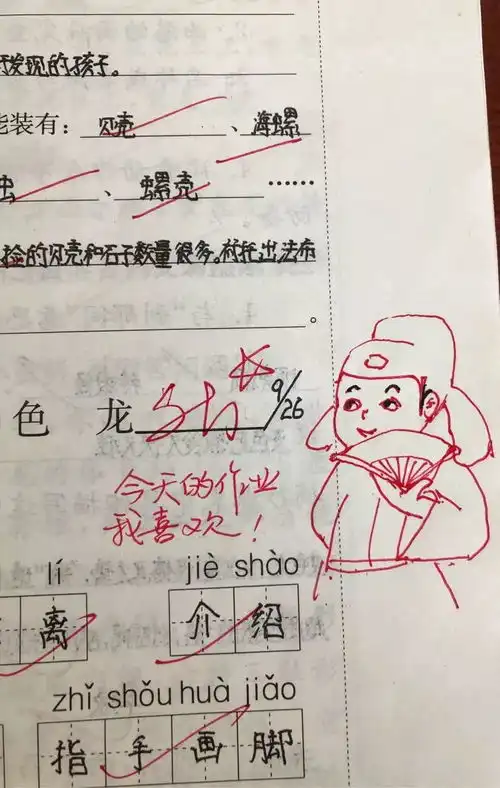 发现的孩子。
能装有： 贝壳 、 海螺
虫 、 螺壳 ……
捡的贝壳和石子数量很多。衬托出法布
。
色 龙
9/26
今天的作业
我喜欢！
lí jiè shào
离 介绍
zhǐ shǒu huà jiǎo
指手画脚